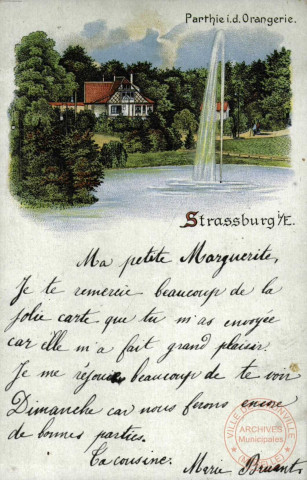 Parthie i.d. Orangerie.
Strassburg i/E.
Ma petite Marguerite,
Je te remercie beaucoup de la
jolie carte que tu m'as envoyée
car elle m'a fait grand plaisir.
Je me réjouis beaucoup de te voir
Dimanche car nous ferons encore
de bonnes parties.
Ta cousine. Marie Bruant
VILLE DE THIONVILLE
ARCHIVES
Municipales
(MOSELLE)